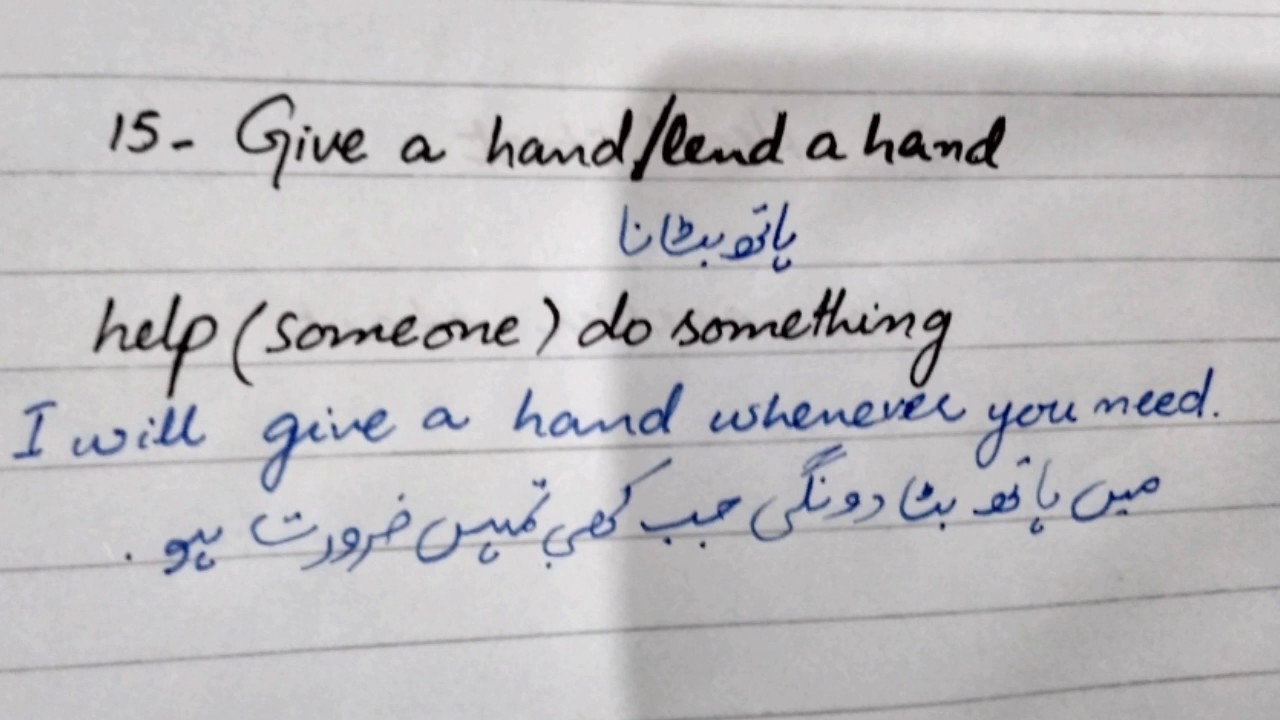 15- Give a hand/lend a hand
ہاتھ بٹانا
help (someone) do something
I will give a hand whenever you need.
میں ہاتھ بٹا دونگی جب کبھی تمہیں ضرورت ہو.